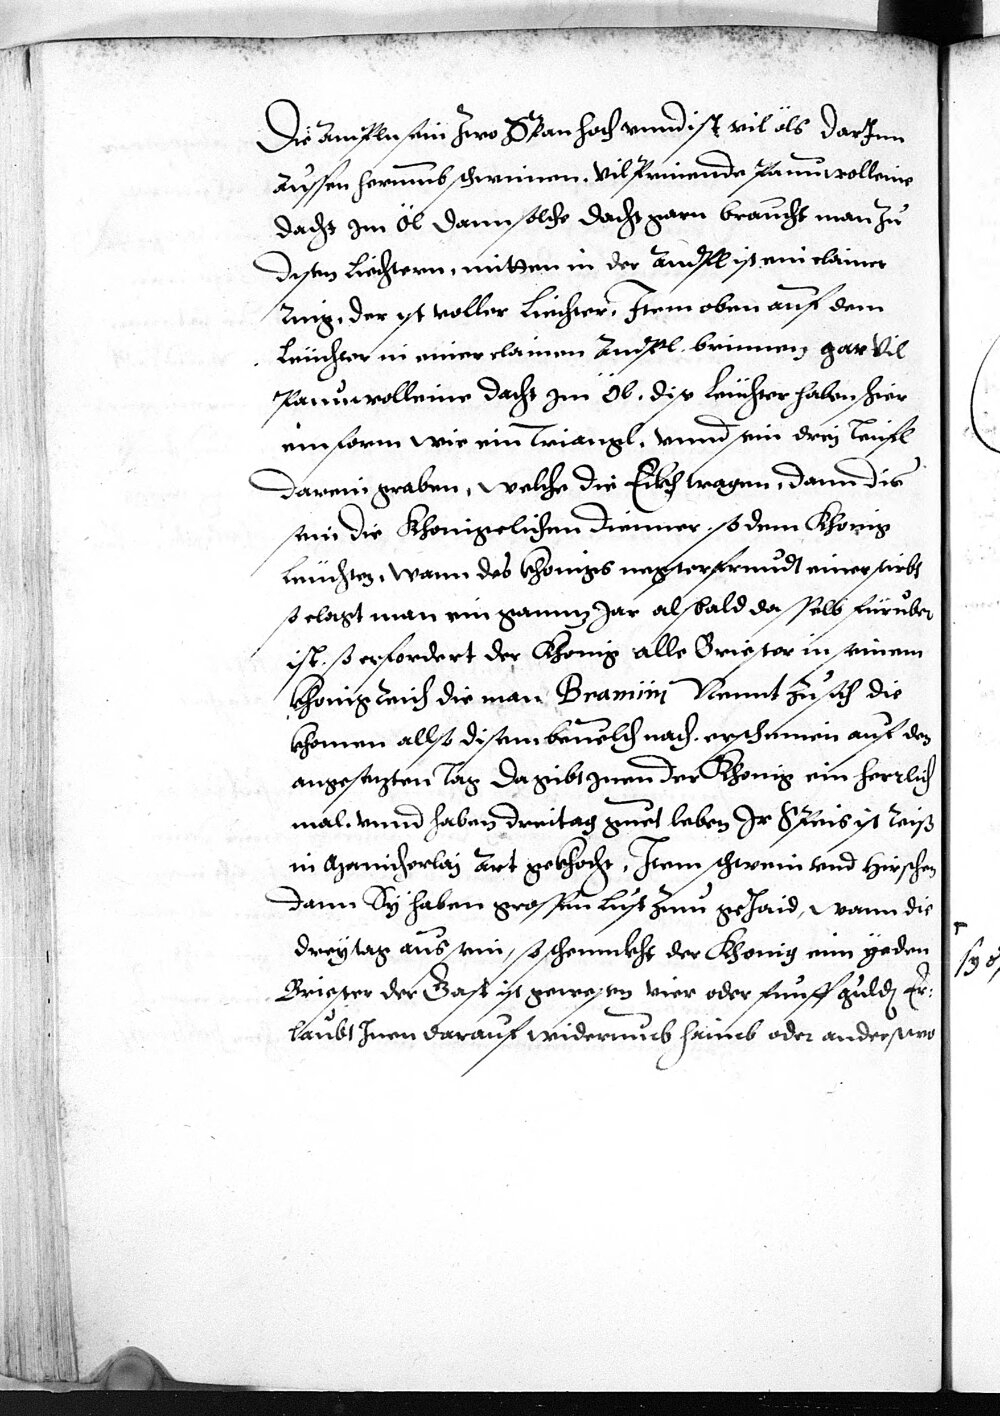 Die Ampln sein zwo Span hoch vnnd ist vil öls darJnn
Aussen herumb schwimen, vil Prinende Paumwolleine
dacht jm Öl dann solche dacht garn braucht man zu
disen Liechtern, mitten in der Ampll ist ein clainer
Ring, der ist voller Liechter, Jtem oben auf dem
Leüchter in einer clainen Ampl, brinnen gar Vil
Paumwolleine dacht jm Öl, dise Leüchter haben schier
ein form wie ein Triangl, vnnd sein drej Teufl
darein graben, welche die Liech tragen, dann dis
sein die Khonigclichen Diennner, so dem Khonig
Leüchten, Wann des Khonigs negster freundt einer stirbt
so clagt man ein gannz Jar als bald dasselb fürüber
ist, so erfordert der Khonig alle Briester in seinem
Khonigreich die man Bramini Nennt zu sich die
khomen allso disem beuelch nach, erscheinen auf den
angesetzten Tag da gibt jnen der Khonig ein herrlich
mal, vnnd haben drei tag guet leben Jr Speis ist Reiß
in Manicherlaj Art gekhocht, Jtem schwein vnd Hirschen
dann Sy haben grossen Lust zum geJaid, wann die
dreÿ tag aus sein, so schennckht der Khonig eim ÿeden
Briester der Gast ist gewesen vier oder funff guldn Er-
laubt Jnen darauf widerumb haimb oder anderstwo